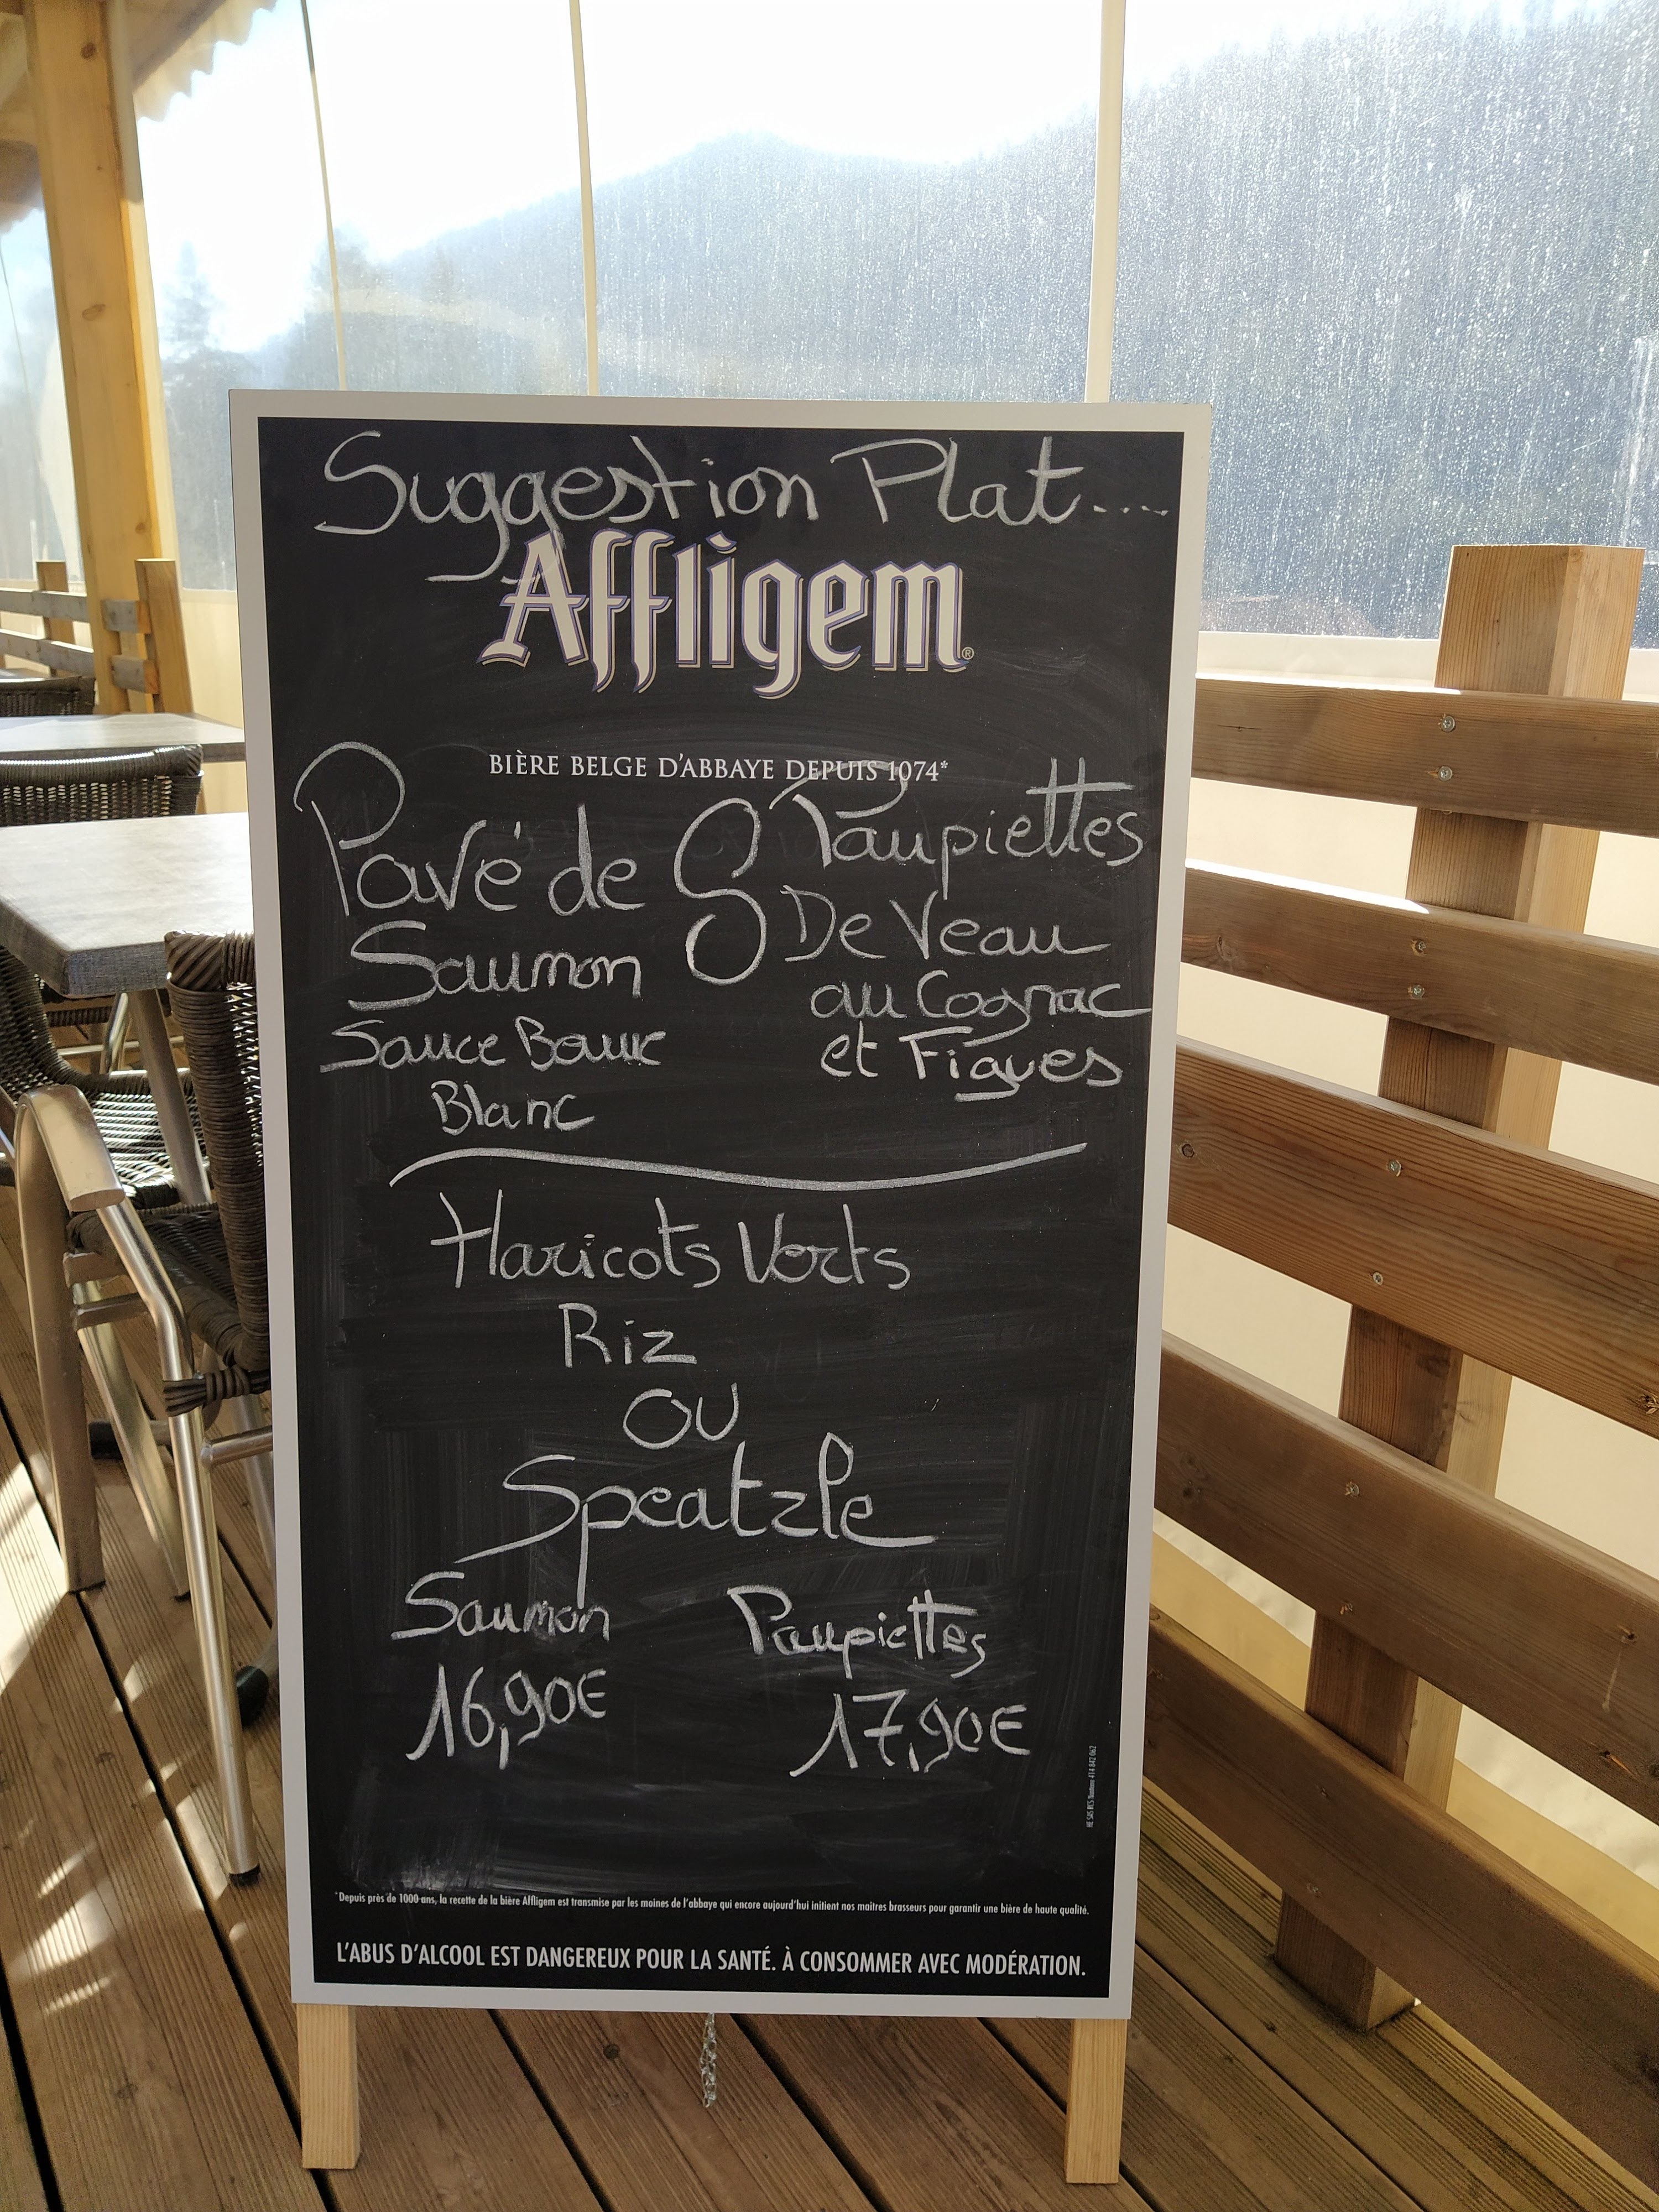 Suggestion Plat....
Affligem®
BIÈRE BELGE D'ABBAYE DEPUIS 1074*
Pavé de
Saumon
Sauce Baurre
Blanc
Paupiettes
De Veau
au Cognac
et Figues
Haricots Verts
Riz
OU
Speatzle
Saumon
16,90€
Paupiettes
17,90€
*Depuis près de 1000 ans, la recette de la bière Affligem est transmise par les moines de l'abbaye qui encore aujourd'hui initient nos maîtres brasseurs pour garantir une bière de haute qualité.
L'ABUS D'ALCOOL EST DANGEREUX POUR LA SANTÉ. À CONSOMMER AVEC MODÉRATION.